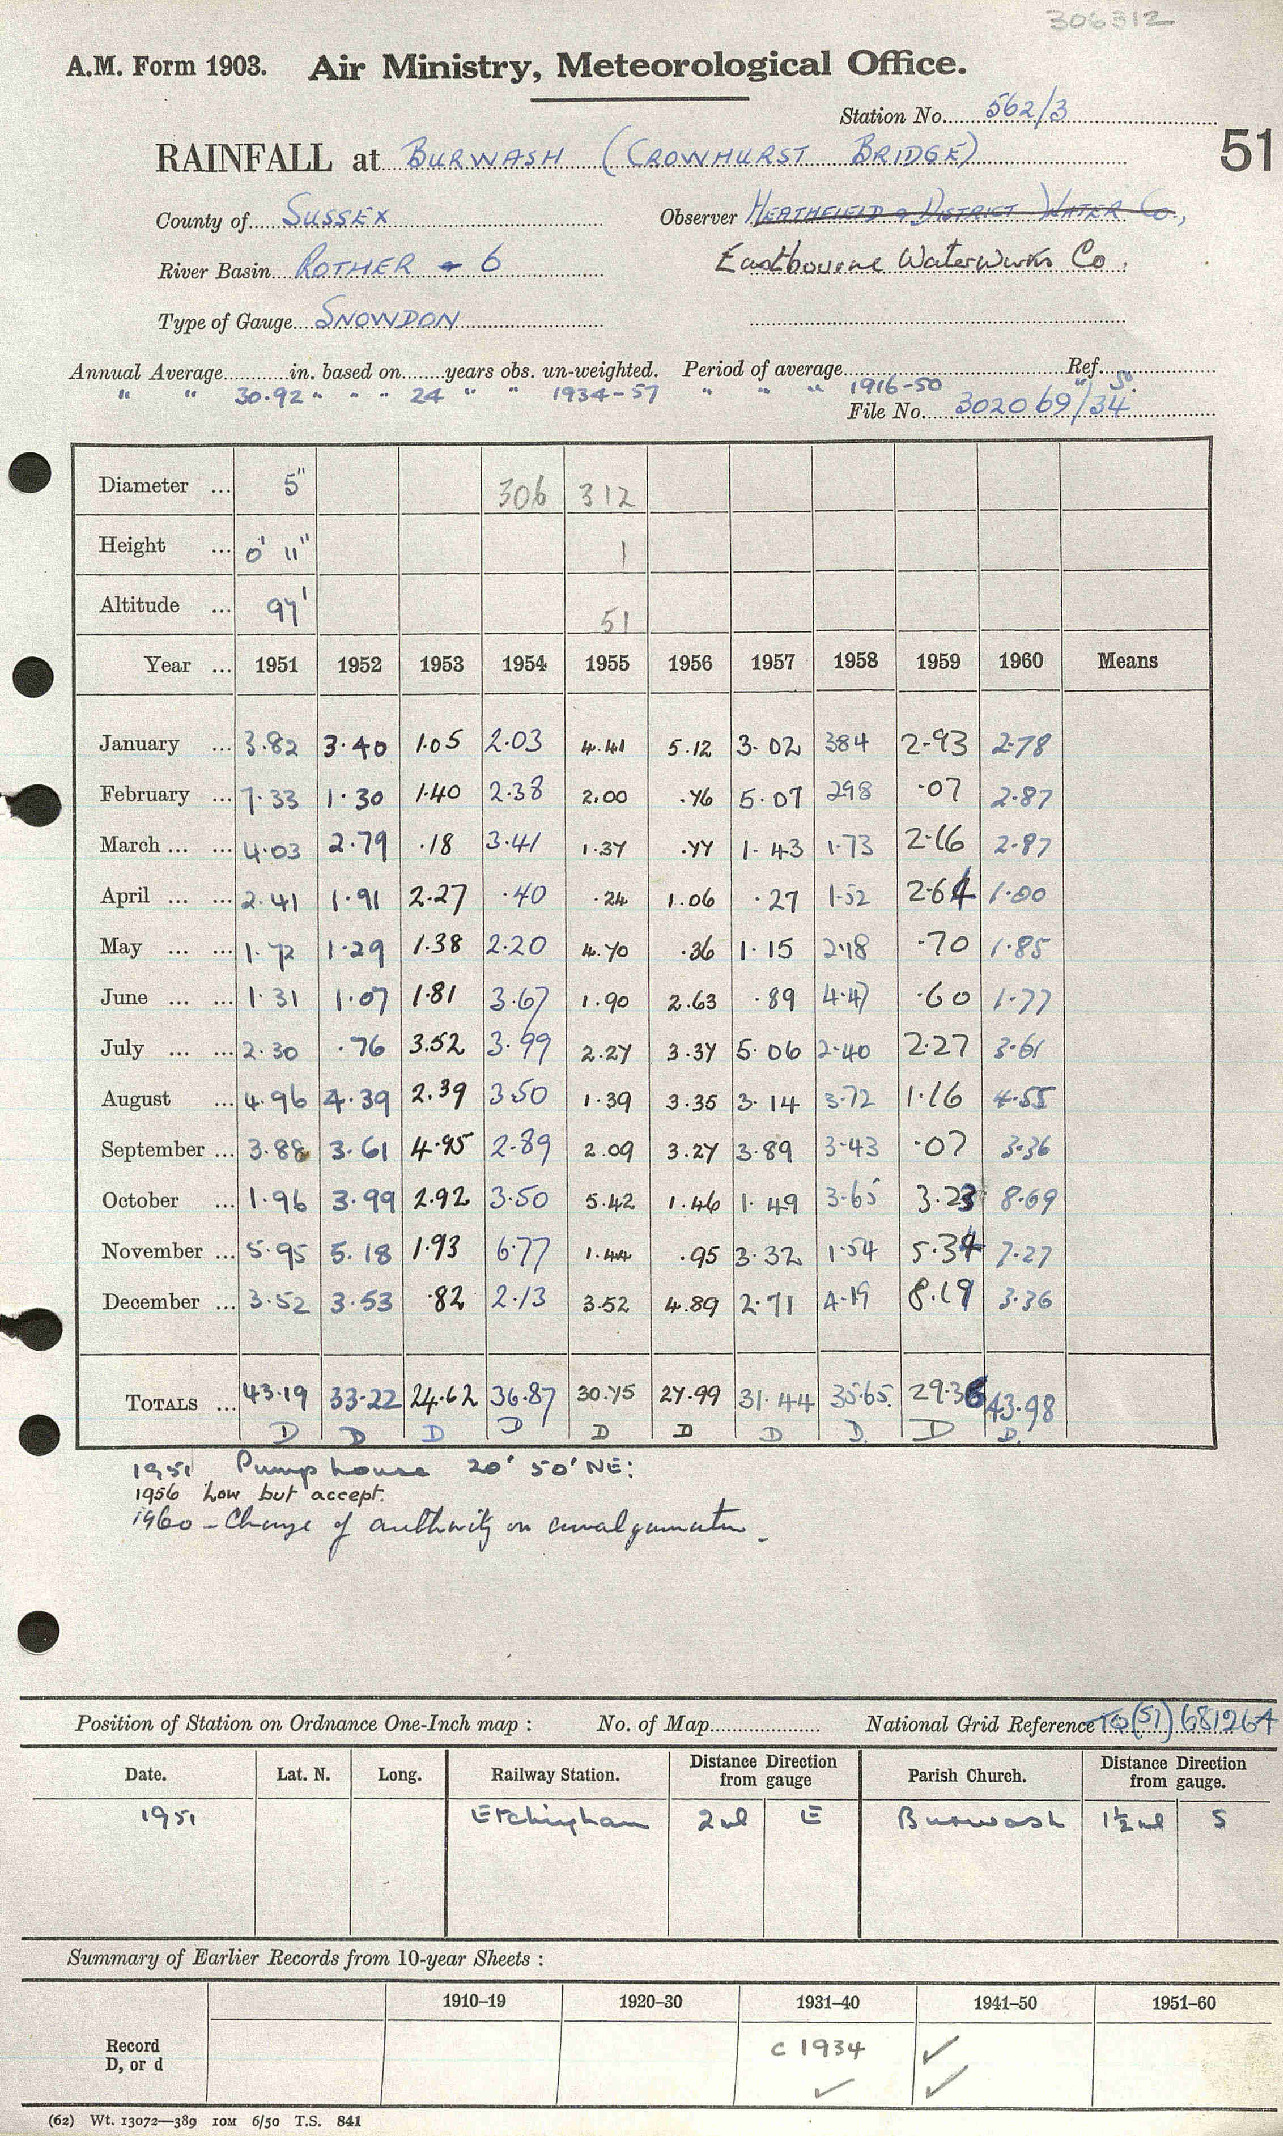 306312
A.M. Form 1903. Air Ministry, Meteorological Office.
Station No. 562/3
RAINFALL at BURWASH (CROWHURST BRIDGE) 51
County of SUSSEX Observer HEATHFIELD & DISTRICT WATER Co.,
River Basin ROTHER - 6 Eastbourne Waterworks Co.
Type of Gauge SNOWDON
Annual Average in. based on years obs. un-weighted. Period of average Ref.
" " 30.92 " " " 24 " " 1934-57 " " " 1916-50 "
File No. 302069/34
Diameter ... 5" 306 312
Height ... 0' 11" 1
Altitude ... 97' 51
Year ... 1951 1952 1953 1954 1955 1956 1957 1958 1959 1960 Means
January ... 3.82 3.40 1.05 2.03 4.41 5.12 3.02 384 2.93 2.78
February ... 7.33 1.30 1.40 2.38 2.00 .76 5.07 298 .07 2.87
March ... ... 4.03 2.79 .18 3.41 1.37 .77 1.43 1.73 2.16 2.87
April ... ... 2.41 1.91 2.27 .40 .24 1.06 .27 1.52 2.64 1.00
May ... ... 1.72 1.29 1.38 2.20 4.70 .36 1.15 2.18 .70 1.85
June ... ... 1.31 1.07 1.81 3.67 1.90 2.63 .89 4.47 .60 1.77
July ... ... 2.30 .76 3.52 3.99 2.27 3.37 5.06 2.40 2.27 3.61
August ... 4.96 4.39 2.39 3.50 1.39 3.35 3.14 3.72 1.16 4.55
September ... 3.88 3.61 4.95 2.89 2.09 3.27 3.89 3.43 .07 3.36
October ... 1.96 3.99 2.92 3.50 5.42 1.46 1.49 3.65 3.23 8.69
November ... 5.95 5.18 1.93 6.77 1.44 .95 3.32 1.54 5.34 7.27
December ... 3.52 3.53 .82 2.13 3.52 4.89 2.71 4.19 8.19 3.36
TOTALS ... 43.19 33.22 24.62 36.87 30.75 27.99 31.44 35.65. 29.36 43.98
D D D D D D D D. D D.
1951 Pump house 20' 50' NE:
1956 Low but accept.
1960 - Change of authority on amalgamation.
Position of Station on Ordnance One-Inch map : No. of Map National Grid Reference TQ(51) 681264
Date. Lat. N. Long. Railway Station. Distance Direction from gauge Parish Church. Distance Direction from gauge.
1951 Etchingham 2 ml E Burwash 1½ ml S
Summary of Earlier Records from 10-year Sheets :
1910–19 1920–30 1931–40 1941–50 1951–60
Record c 1934 ✓
D, or d ✓ ✓
(62) Wt. 13072—389 10M 6/50 T.S. 841